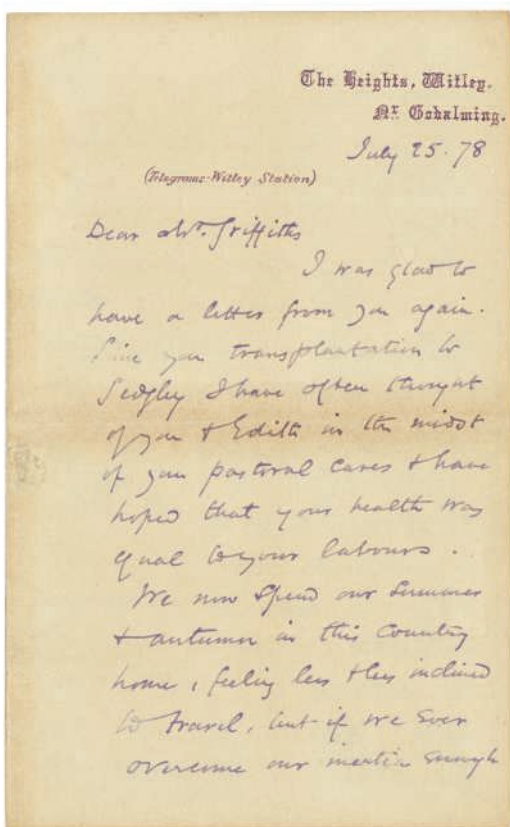 The Heights, Witley.
Nr. Godalming.
July 25. 78
(Telegrams-Witley Station)
Dear Mr. Griffiths
I was glad to
have a letter from you again.
Since your transplantation to
Sedgley I have often thought
of you & Edith in the midst
of your pastoral cares & have
hoped that your health was
equal to your labours.
We now spend our summer
& autumn in this country
home, feeling less & less inclined
to travel, but if we ever
overcome our inertia enough